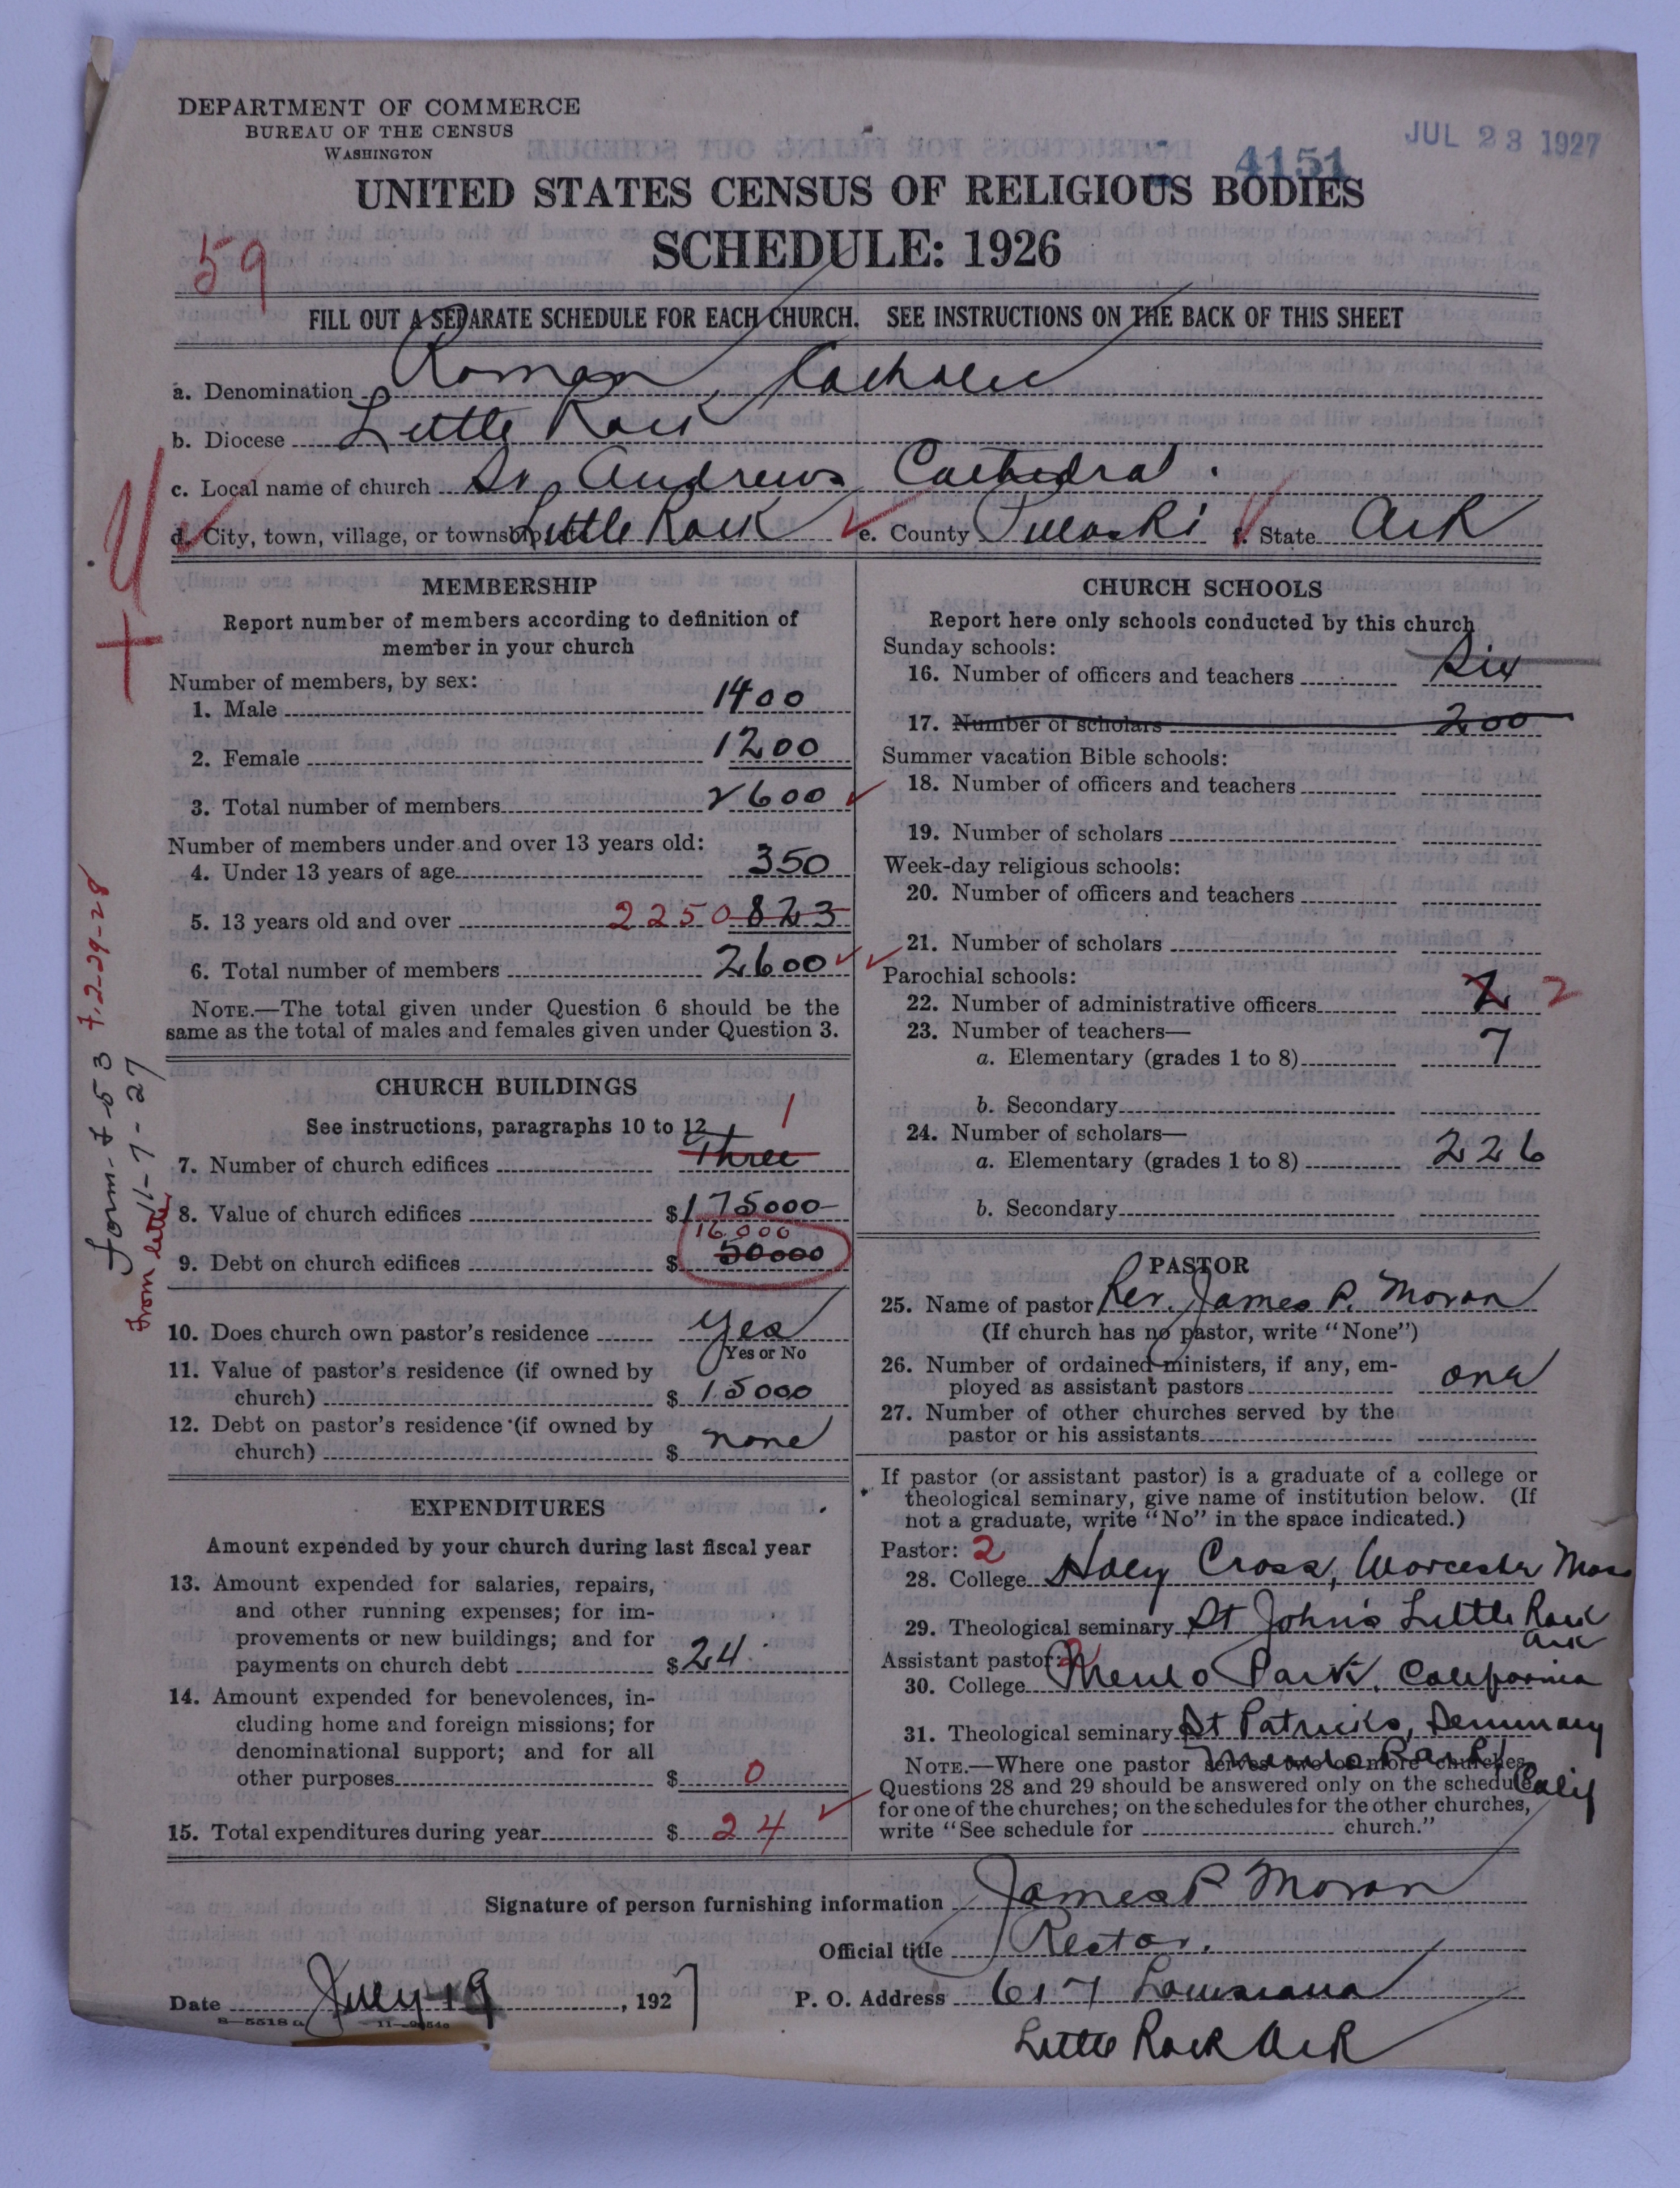 DEPARTMENT OF COMMERCE
BUREAU OF THE CENSUS
WASHINGTON
4151
JUL 23 1927
UNITED STATES CENSUS OF RELIGIOUS BODIES
SCHEDULE: 1926
59
FILL OUT A SEPARATE SCHEDULE FOR EACH CHURCH. SEE INSTRUCTIONS ON THE BACK OF THIS SHEET
a. Denomination Roman Catholic
b. Diocese Little Rock
c. Local name of church St Andrews Cathedral.
d. City, town, village, or township Little Rock e. County Pulaski f. State Ark
MEMBERSHIP
Report number of members according to definition of
member in your church
Number of members, by sex:
1. Male 1400
2. Female 1200
3. Total number of members 2600
Number of members under and over 13 years old:
4. Under 13 years of age 350
5. 13 years old and over 2250 823
6. Total number of members 2600
NOTE.—The total given under Question 6 should be the
same as the total of males and females given under Question 3.
CHURCH BUILDINGS
See instructions, paragraphs 10 to 12
1
7. Number of church edifices Three
8. Value of church edifices $175000
16000
9. Debt on church edifices $ 50000
10. Does church own pastor's residence Yes
Yes or No
11. Value of pastor's residence (if owned by
church) $ 15000
12. Debt on pastor's residence (if owned by
church) $ none
EXPENDITURES
Amount expended by your church during last fiscal year
13. Amount expended for salaries, repairs,
and other running expenses; for im-
provements or new buildings; and for
payments on church debt $24.
14. Amount expended for benevolences, in-
cluding home and foreign missions; for
denominational support; and for all
other purposes $ 0
15. Total expenditures during year $ 24
Form 11-7-27
from letter
2-29-28
CHURCH SCHOOLS
Report here only schools conducted by this church
Sunday schools:
16. Number of officers and teachers Six
17. Number of scholars 200
Summer vacation Bible schools:
18. Number of officers and teachers
19. Number of scholars
Week-day religious schools:
20. Number of officers and teachers
21. Number of scholars
Parochial schools:
22. Number of administrative officers 2 2
23. Number of teachers—
a. Elementary (grades 1 to 8) 7
b. Secondary
24. Number of scholars—
a. Elementary (grades 1 to 8) 226
b. Secondary
PASTOR
25. Name of pastor Rev. James P. Moran
(If church has no pastor, write "None")
26. Number of ordained ministers, if any, em-
ployed as assistant pastors one
27. Number of other churches served by the
pastor or his assistants
If pastor (or assistant pastor) is a graduate of a college or
theological seminary, give name of institution below. (If
not a graduate, write "No" in the space indicated.)
Pastor: 2
28. College Holy Cross, Worcester Mass
29. Theological seminary St John's Little Rock
Ark
Assistant pastor: 2
30. College Menlo Park, California
31. Theological seminary St Patricks, Seminary
Menlo Park, Calif
NOTE.—Where one pastor serves two or more churches,
Questions 28 and 29 should be answered only on the schedule
for one of the churches; on the schedules for the other churches,
write "See schedule for church."
Signature of person furnishing information James P Moran
Official title Rector.
Date July 19, 1927
P. O. Address 617 Louisiana
Little Rock Ark
8—5518a